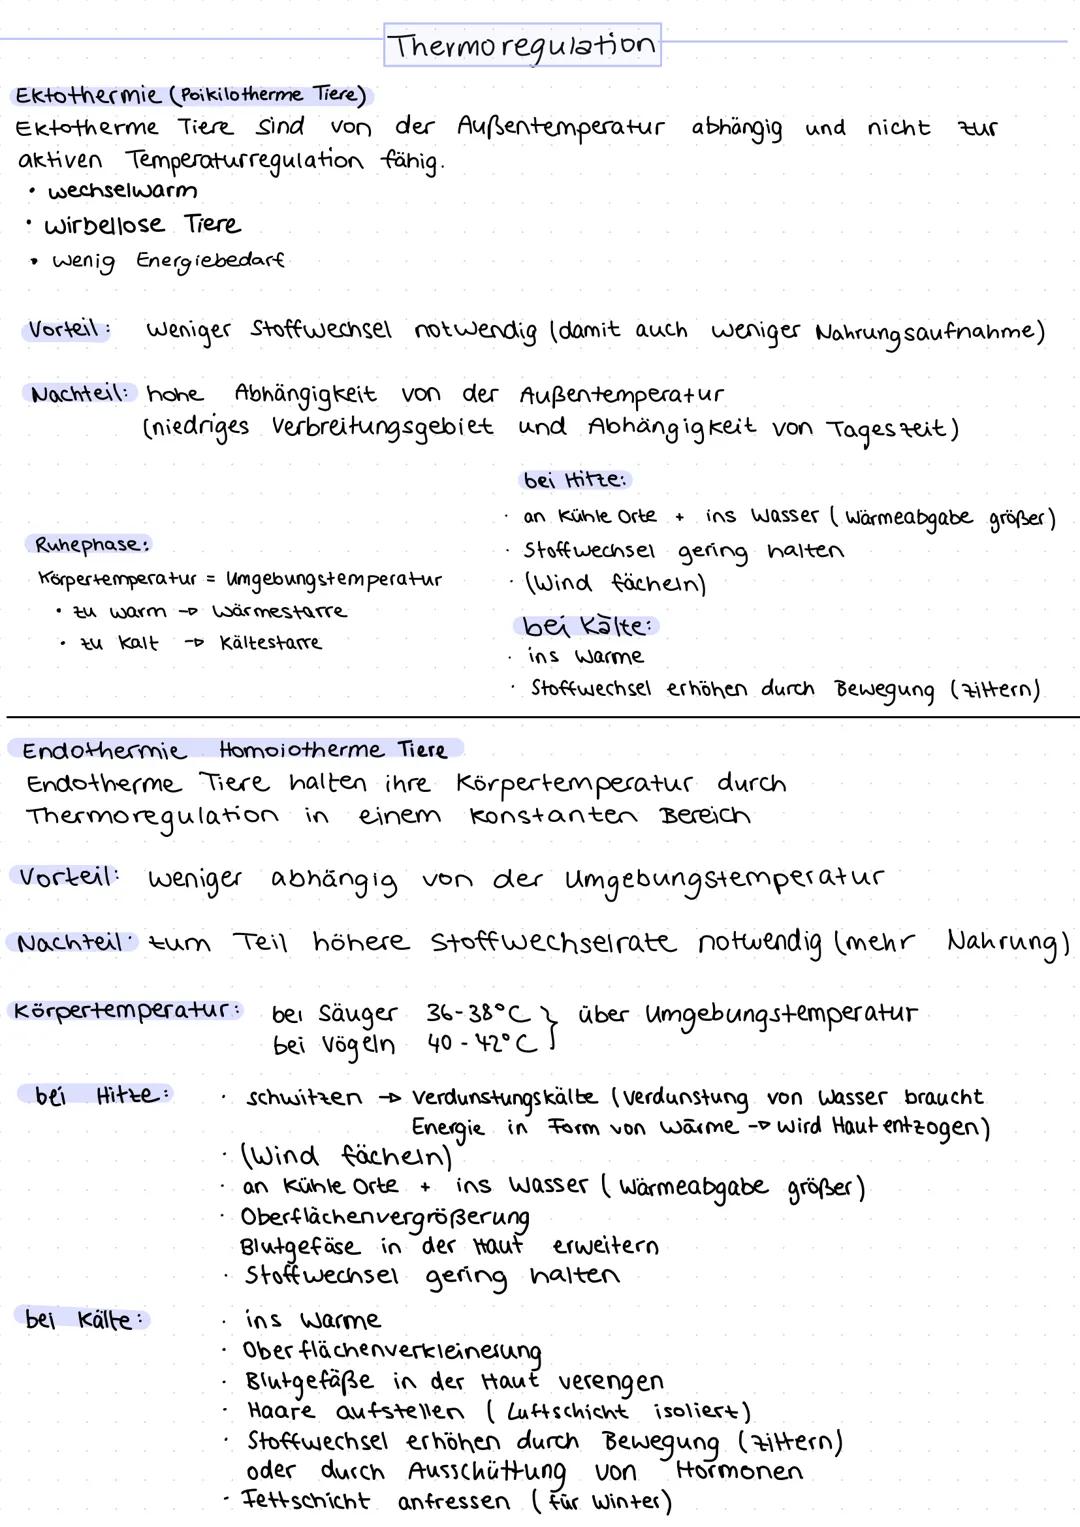 Thermoregulation
Ektothermie (Poikilotherme Tiere)
Ektotherme Tiere sind von der Außentemperatur abhängig und nicht zur
aktiven Temperaturregulation fähig.
• wechselwarm
• wirbellose Tiere
• wenig Energiebedarf
Vorteil: weniger Stoffwechsel notwendig (damit auch weniger Nahrungsaufnahme)
Nachteil: hohe Abhängigkeit von der Außentemperatur
(niedriges Verbreitungsgebiet und Abhängigkeit von Tageszeit)
Ruhephase:
Körpertemperatur = Umgebungstemperatur
• zu warm → Wärmestarre
• zu kalt → Kältestarre
bei Hitze:
· an kühle Orte + ins Wasser (Wärmeabgabe größer)
· Stoffwechsel gering halten
· (Wind fächeln)
bei Kälte:
· ins Warme
· Stoffwechsel erhöhen durch Bewegung (zittern)
Endothermie Homoiotherme Tiere
Endotherme Tiere halten ihre Körpertemperatur durch
Thermoregulation in einem konstanten Bereich
Vorteil: weniger abhängig von der Umgebungstemperatur
Nachteil: zum Teil höhere Stoffwechselrate notwendig (mehr Nahrung)
Körpertemperatur: bei Säuger 36-38°C } über Umgebungstemperatur
bei Vögeln 40-42°C
bei Hitze: · schwitzen → Verdunstungskälte (Verdunstung von Wasser braucht
Energie in Form von Wärme → wird Haut entzogen)
· (Wind fächeln)
· an kühle Orte + ins Wasser (Wärmeabgabe größer)
· Oberflächenvergrößerung
Blutgefäse in der Haut erweitern
· Stoffwechsel gering halten
bei Kälte: · ins Warme
· Oberflächenverkleinerung
· Blutgefäße in der Haut verengen
· Haare aufstellen (Luftschicht isoliert)
· Stoffwechsel erhöhen durch Bewegung (zittern)
oder durch Ausschüttung von Hormonen
· Fettschicht anfressen (für Winter)